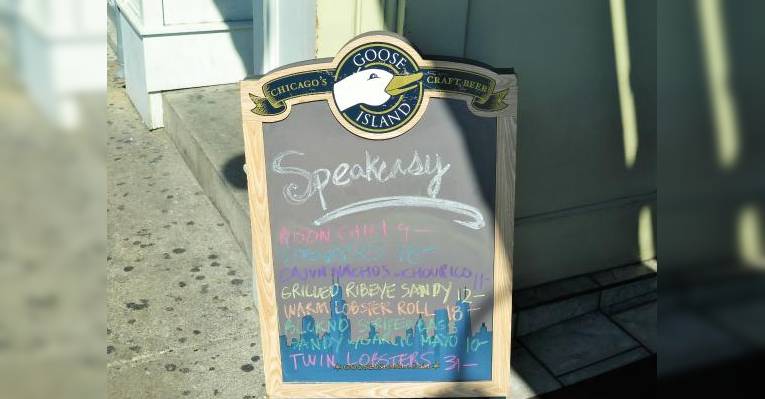 GOOSE
CHICAGO'S CRAFT BEER
ISLAND
Speakeasy
BISON CHILI 9-
CAJUN NACHOS w/CHOURICO 11-
GRILLED RIBEYE SANDY 12-
WARM LOBSTER ROLL 18-
SANDY w/GARLIC MAYO 10-
TWIN LOBSTERS 31-